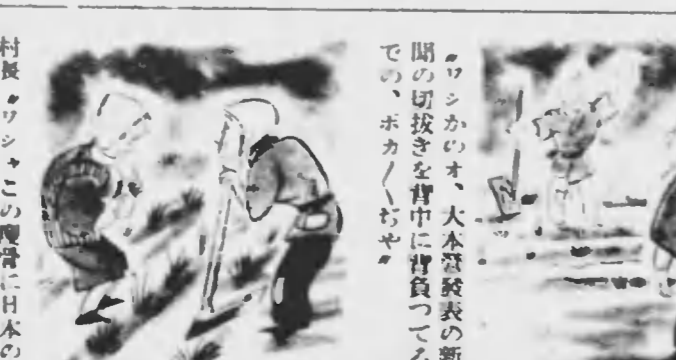 〃ワシかのオ、大本営発表の新
聞の切抜きを背中に背負つてる
での、ポカ〱ぢや〃
村長〃ワシャこの痩骨に日本の